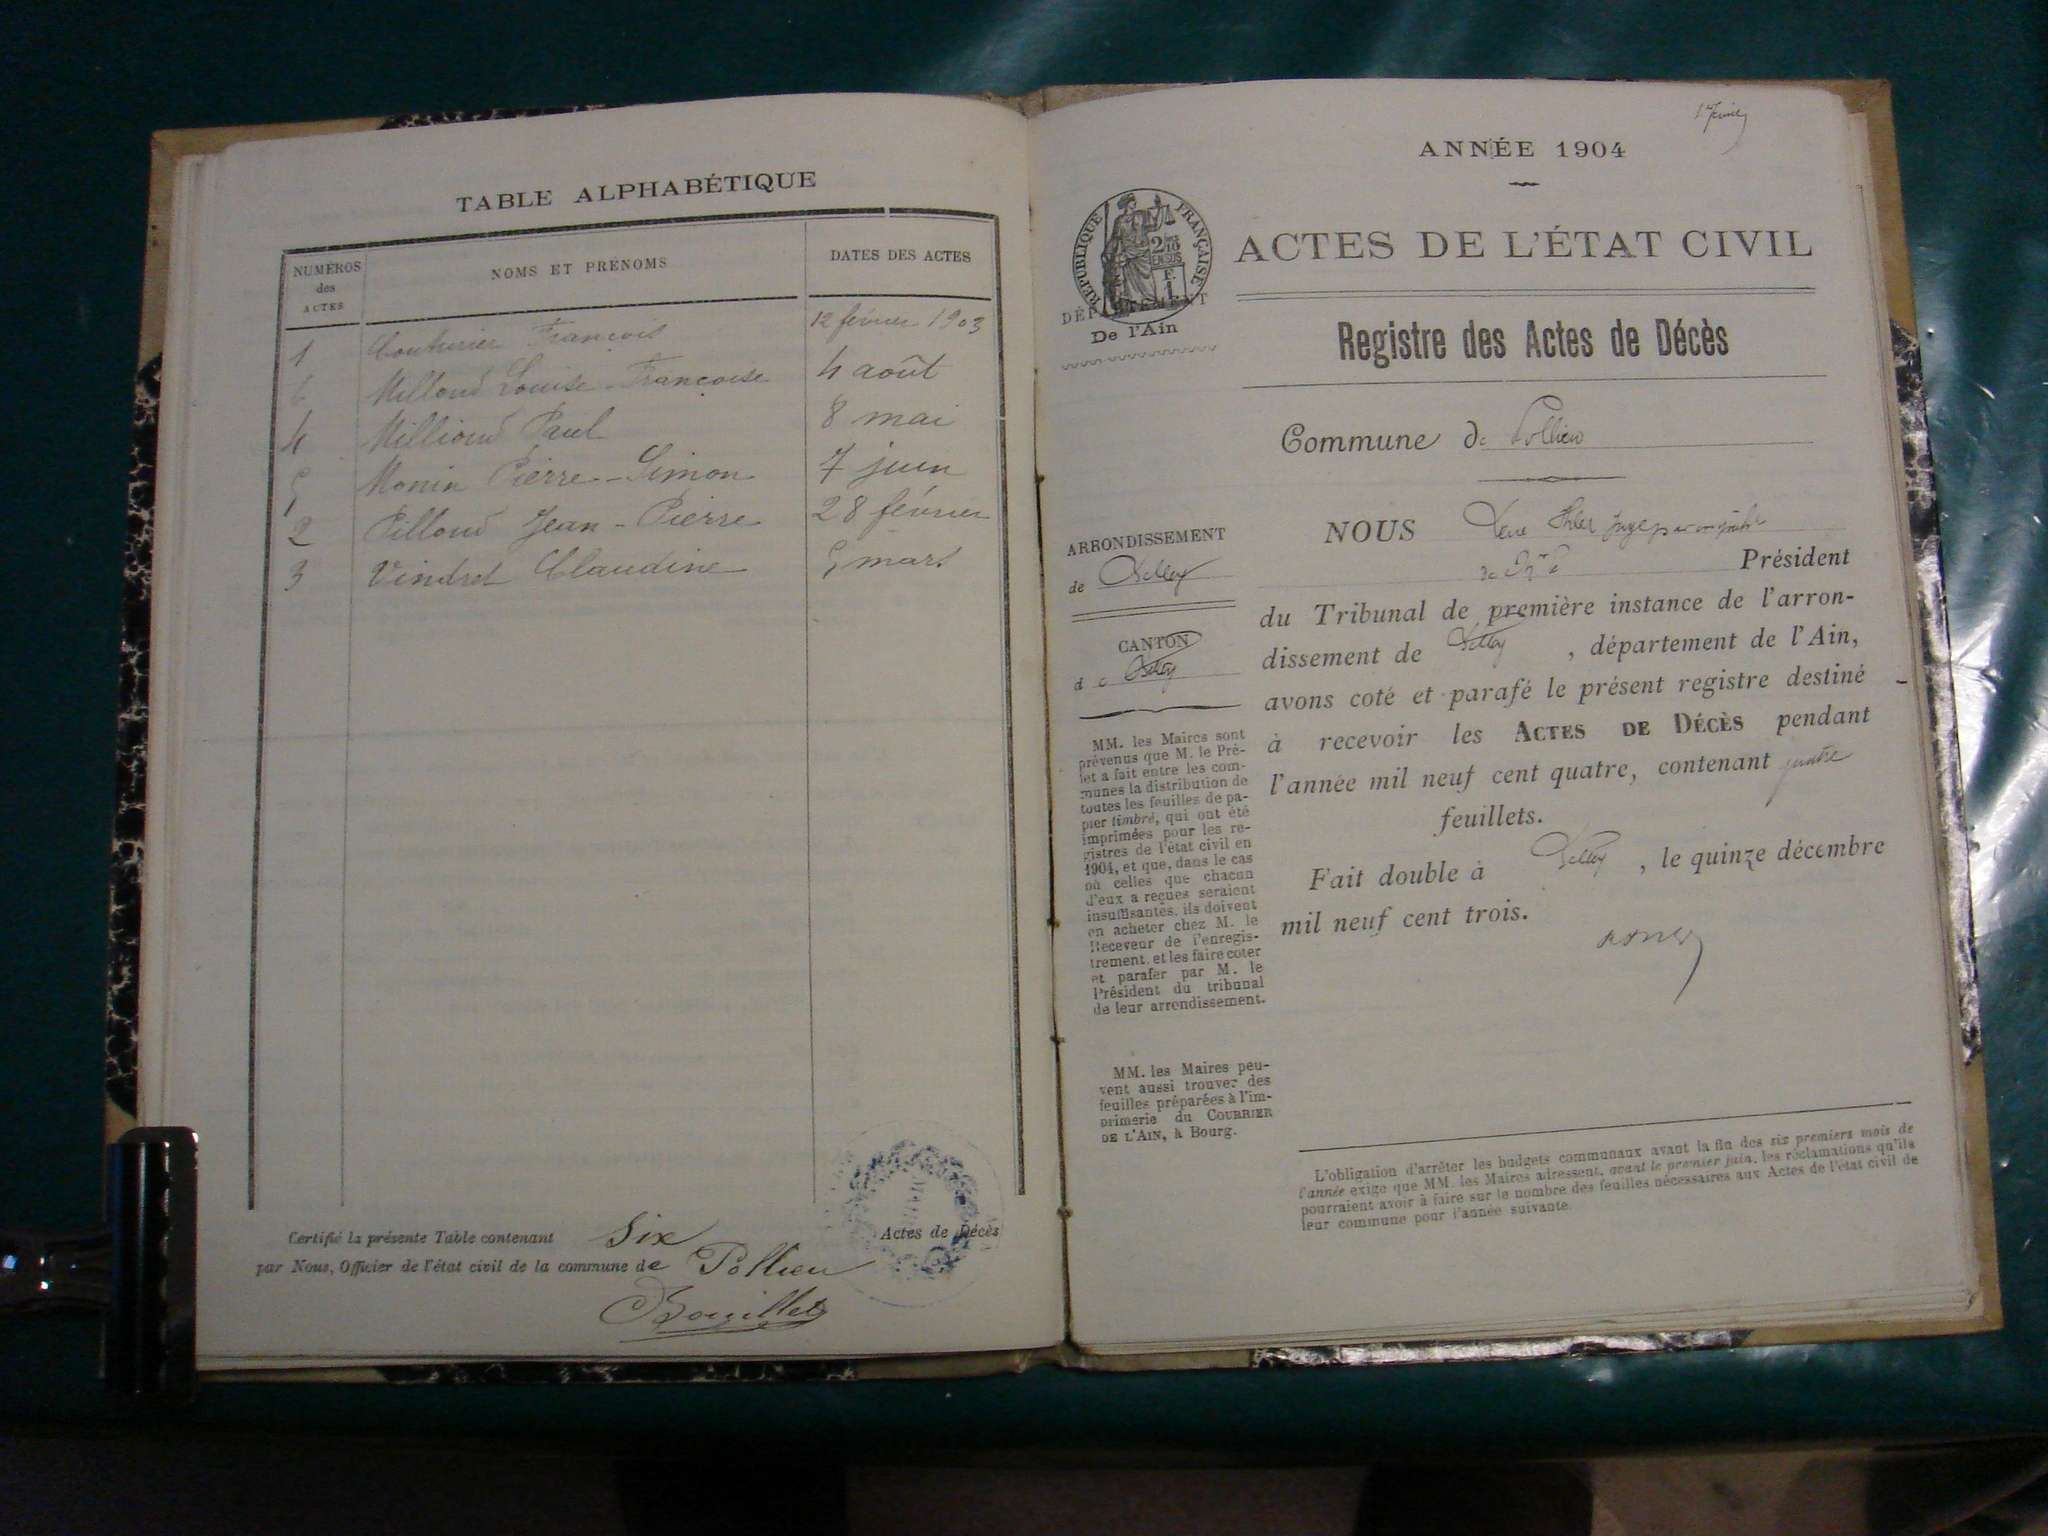 TABLE ALPHABÉTIQUE
NUMÉROS
des
ACTES
NOMS ET PRÉNOMS
DATES DES ACTES
1 Couturier François 12 février 1903
6 Milloud Louise-Françoise 4 août
4 Millioud Paul 8 mai
5 Monin Pierre-Simon 7 juin
2 Pilloud Jean-Pierre 28 février
3 Vindret Claudine 5 mars
Certifié la présente Table contenant Six Actes de Décès
par Nous, Officier de l'état civil de la commune de Pollieu
Bouillet
1er
ANNÉE 1904
RÉPUBLIQUE FRANÇAISE
DÉPARTEMENT
De l'Ain
ACTES DE L'ÉTAT CIVIL
Registre des Actes de Décès
Commune de Pollieu
ARRONDISSEMENT
de Belley
CANTON
de Belley
MM. les Maires sont
prévenus que M. le Pré-
fet a fait entre les com-
munes la distribution de
toutes les feuilles de pa-
pier timbré, qui ont été
imprimées pour les re-
gistres de l'état civil en
1904, et que, dans le cas
où celles que chacun
d'eux a reçues seraient
insuffisantes, ils doivent
en acheter chez M. le
Receveur de l'enregis-
trement, et les faire coter
et parafer par M. le
Président du tribunal
de leur arrondissement.
MM. les Maires peu-
vent aussi trouver des
feuilles préparées à l'im-
primerie du COURRIER
DE L'AIN, à Bourg.
NOUS juge
Président
du Tribunal de première instance de l'arron-
dissement de Belley, département de l'Ain,
avons coté et parafé le présent registre destiné
à recevoir les ACTES DE DÉCÈS pendant
l'année mil neuf cent quatre, contenant quatre
feuillets.
Fait double à Belley, le quinze décembre
mil neuf cent trois.
L'obligation d'arrêter les budgets communaux avant la fin des six premiers mois de
l'année exige que MM. les Maires adressent, avant le premier juin, les réclamations qu'ils
pourraient avoir à faire sur le nombre des feuilles nécessaires aux Actes de l'état civil de
leur commune pour l'année suivante.